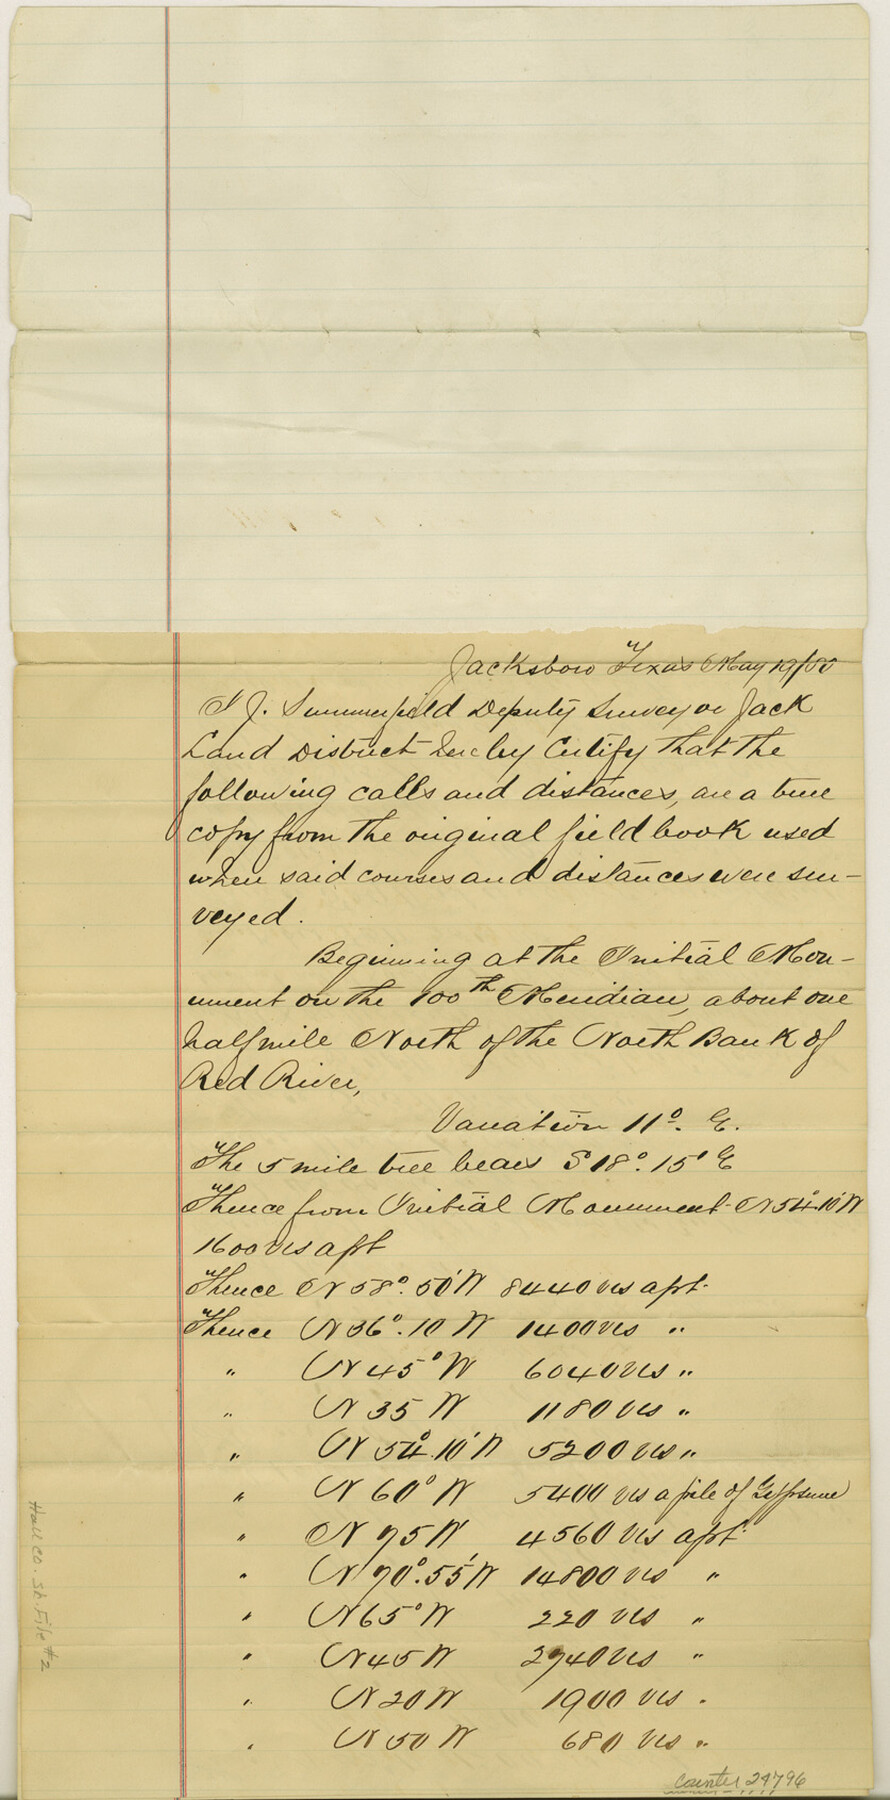 Jacksboro Texas May 19/
I J. Summerfield Deputy Surveyor Jack
Land District hereby Certify that the
following calls and distances, are a true
copy from the original field book used
when said courses and distances were sur-
veyed.
Beginning at the Initial Mon-
ument on the 100th Meridian, about one
half mile North of the North Bank of
Red River,
Variation 11°. E.
The 5 mile tree bears S 18°. 15' E
Thence from Initial Monument N 54°.10' W
1600 vrs a pt
Thence N 58°. 50' W 8440 vrs a pt.
Thence N 36°. 10 W 1400 vrs "
" N 45° W 6040 vrs "
" N 35 W 1180 vrs "
" N 54°.10' W 5200 vrs "
" N 60° W 5400 vrs a pile of Gypsume
" N 75 W 4560 vrs a pt.
" N 70°. 55' W 14800 vrs "
" N 65° W 220 vrs "
" N 45 W 2740 vrs "
" N 20 W 1900 vrs "
" N 50 W 680 vrs "
Hall Co. Sk. File #2
counter 24796